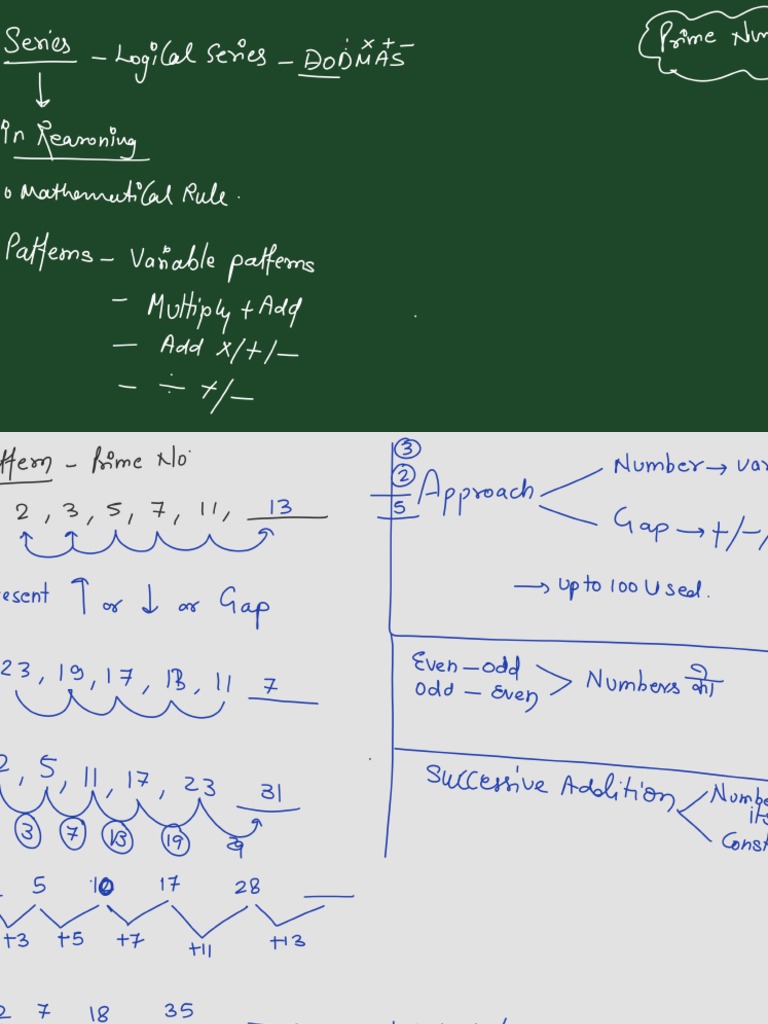 Series - Logical Series - BODMAS
÷ × + -
Prime Num
↓
in Reasoning
o Mathematical Rule.
Patterns - Variable patterns
- Multiply + Add
- Add ×/+/-
- ÷ +/-
ttern - Prime No.
2, 3, 5, 7, 11, 13
esent ↑ or ↓ or Gap
23, 19, 17, 13, 11 7
2, 5, 11, 17, 23 31
3 7 13 19 29
5 10 17 28
+3 +5 +7 +11 +13
2 7 18 35
3
2
5
Approach
Number → var
Gap → +/-/
→ up to 100 Used.
Even - odd
Odd - Even
Numbers का
Successive Addition
Numbe
its
Const